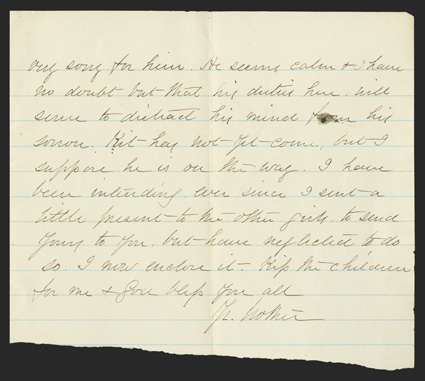 very sorry for him. He seems calm & I have
no doubt but that his duties here will
serve to distract his mind from his
sorrow. Kit has not yet come, but I
suppose he is on the way. I have
been intending ever since I sent a
little present to the other girls to send
yours to you, but have neglected to do
so. I now enclose it. Kiss the children
for me & God bless you all
Yr. Mother